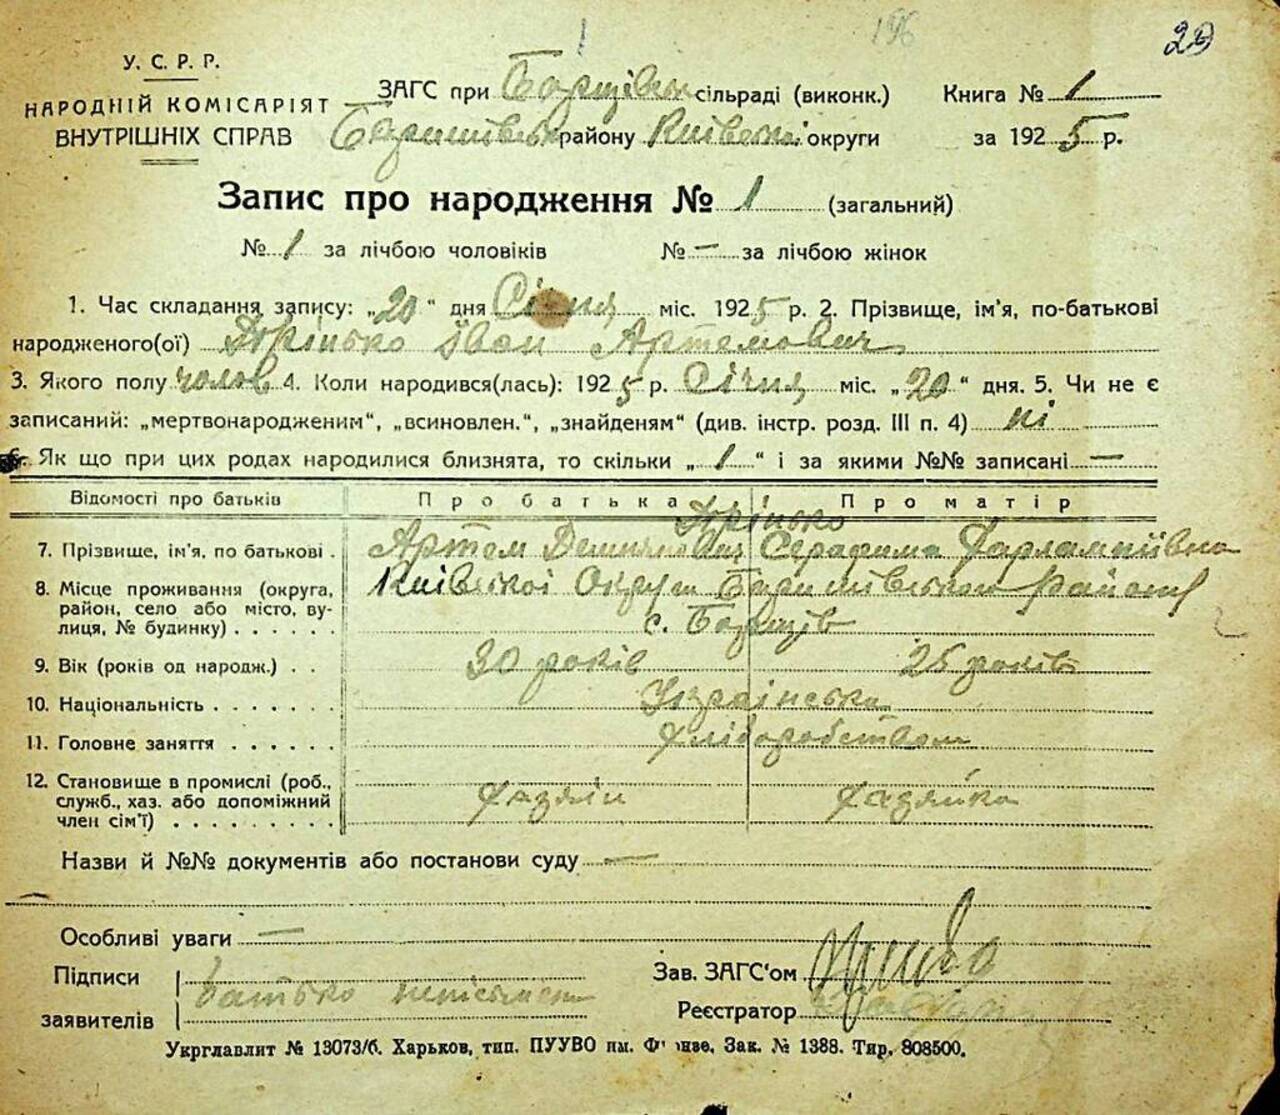 196
29
У. С. Р. Р.
НАРОДНІЙ КОМІСАРІЯТ
ВНУТРІШНІХ СПРАВ
ЗАГС при Борщівск сільраді (виконк.) Книга № 1
Баришівськ району Київської округи за 1925 р.
Запис про народження № 1 (загальний)
№ 1 за лічбою чоловіків № — за лічбою жінок
1. Час складання запису: „20" дня Січня міс. 1925 р. 2. Прізвище, ім'я, по-батькові
народженого(ої) Іван Артемович
3. Якого полу чолов 4. Коли народився(лась): 1925 р. Січня міс. „20" дня. 5. Чи не є
записаний: „мертвонародженим", „всиновлен.", „знайденям" (див. інстр. розд. III п. 4) ні
6. Як що при цих родах народилися близнята, то скільки „1" і за якими №№ записані —
Відомості про батьків Про батька Про матір
7. Прізвище, ім'я, по батькові . Артем Демянович Серафима Харлампіївна
8. Місце проживання (округа, район, село або місто, вулиця, № будинку) . . . . . . Київської Округи Баришівського району
с. Борщів
9. Вік (років од народж.) . . 30 років 25 років
10. Національність . . . . . . . Українська
11. Головне заняття . . . . . . Хліборобством
12. Становище в промислі (роб., служб., хаз. або допоміжний член сім'ї) . . . . . . . . . Хазяїн Хазяйка
Назви й №№ документів або постанови суду —
Особливі уваги —
Підписи заявителів батько неписьмен
Зав. ЗАГС'ом
Реєстратор
Укрглавлит № 13073/б. Харьков, тип. ПУУВО им. Фрунзе. Зак. № 1388. Тир. 808500.